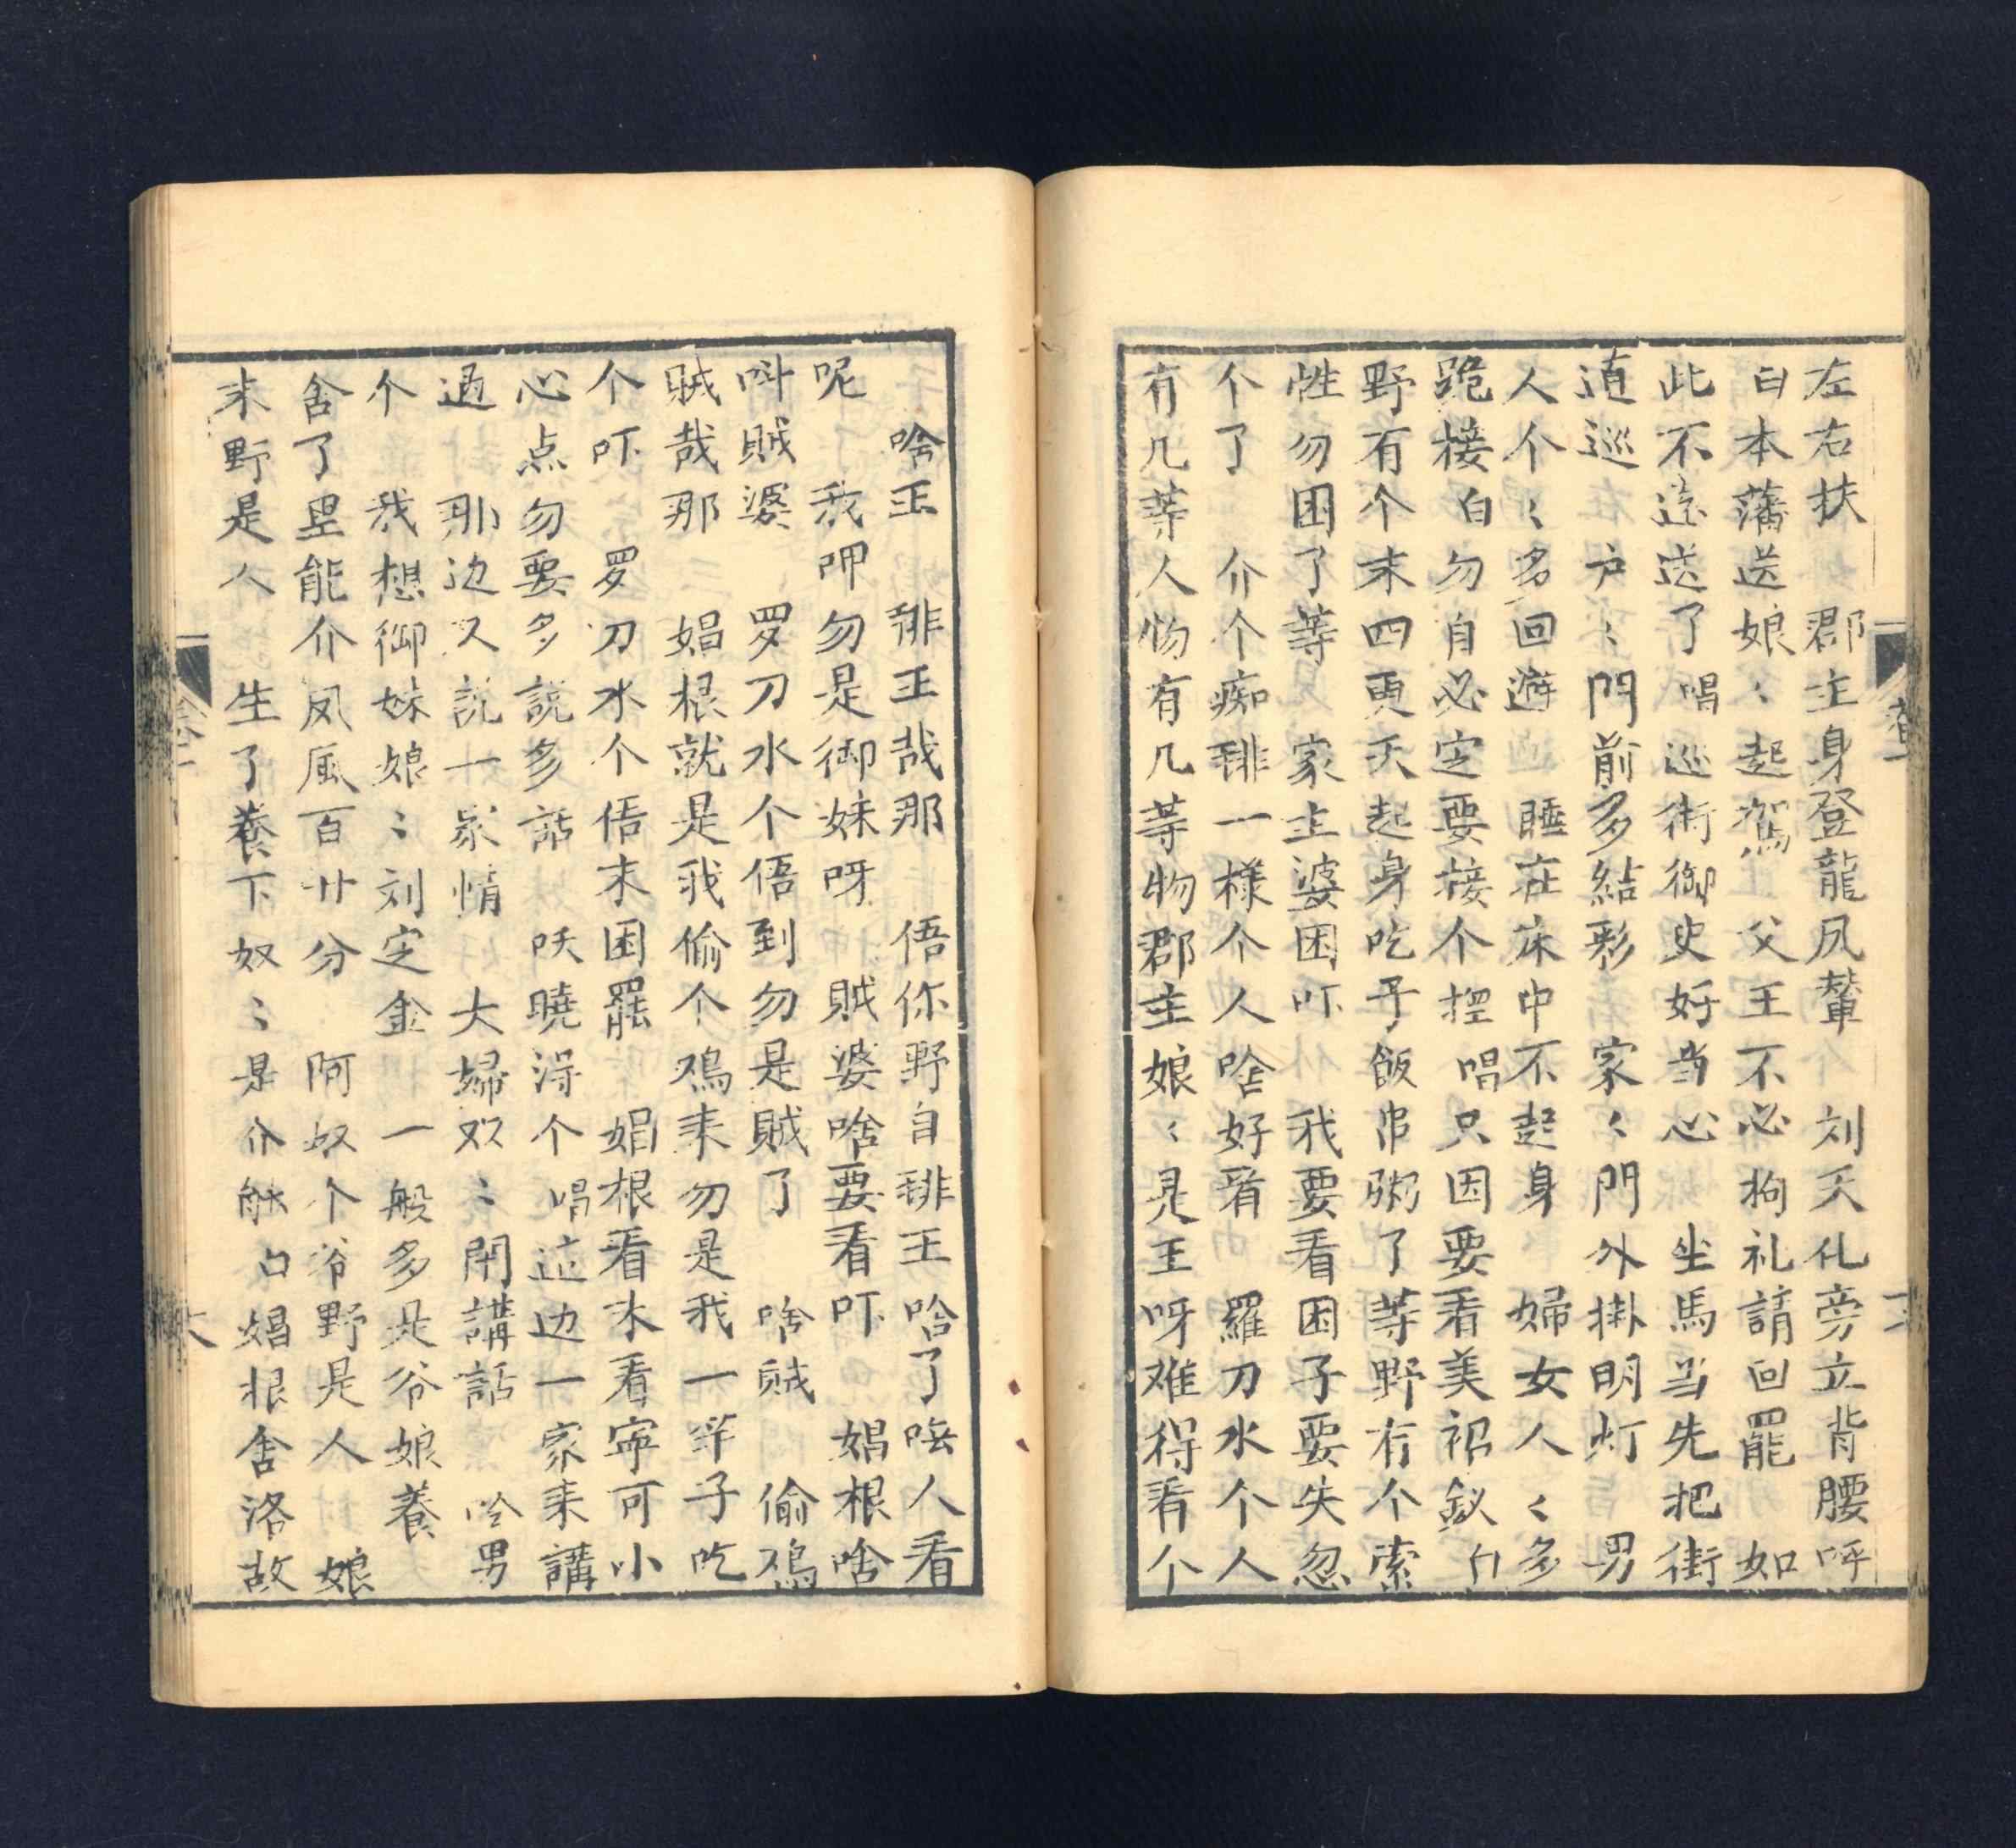 左右扶　郡主身登龍凤輦　刘天化旁立背腰呼
白本藩送娘〻起駕　父王不必拘礼請回罷　如
此不遠送了唱巡街御史好当心　坐馬当先把街
道巡　户〻門前多結彩　家〻門外掛明灯　男
人个〻多回避　睡在床中不起身　婦女人〻多
跪接白勿自必定要接个担唱只因要看美裙釵白
野有个末四更天起身吃子飯串粥了等野有个索
性勿困了等　家主婆困吓　我要看困子要失忽
个了　介个痴琲一樣个人啥好看　羅刀水个人
有几等人物有几等物郡主娘〻是王呀难得看个
啥王　琲王哉那　俉你野自琲王啥了呒人看
呢　我呷勿是御妹呀　賊婆啥要看吓　娼根啥
叫賊婆　罗刀水个俉到勿是賊了　啥賊　偷鳮
賊哉那　娼根就是我偷个鳮来勿是我一羋子吃
个吓　罗刀水个俉末困罷　娼根看末看寜可小
心点勿要多說多話　呋曉得个唱這边一家来講
過　那边又說一家情　大婦双〻閗講話　吟男
个　我想御妹娘〻刘定金　一般多是爷娘養
舍了里能介凤凬百廿分　阿奴个爷野是人　娘
末野是人　生了養下奴〻是介觥白娼根舍洛故
卷一
六